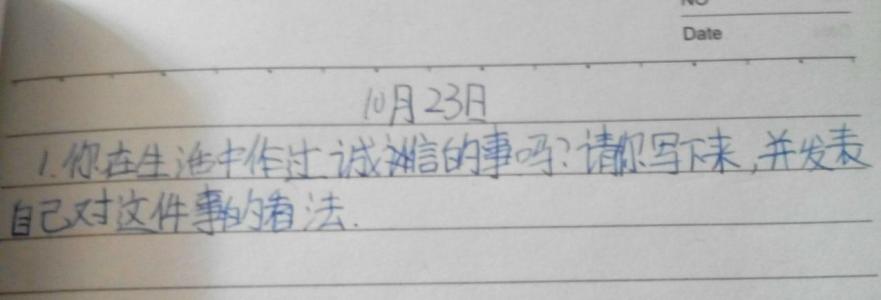 NO
Date
10月23日
1.你在生活中作过诚信的事吗?请你写下来,并发表
自己对这件事的看法.